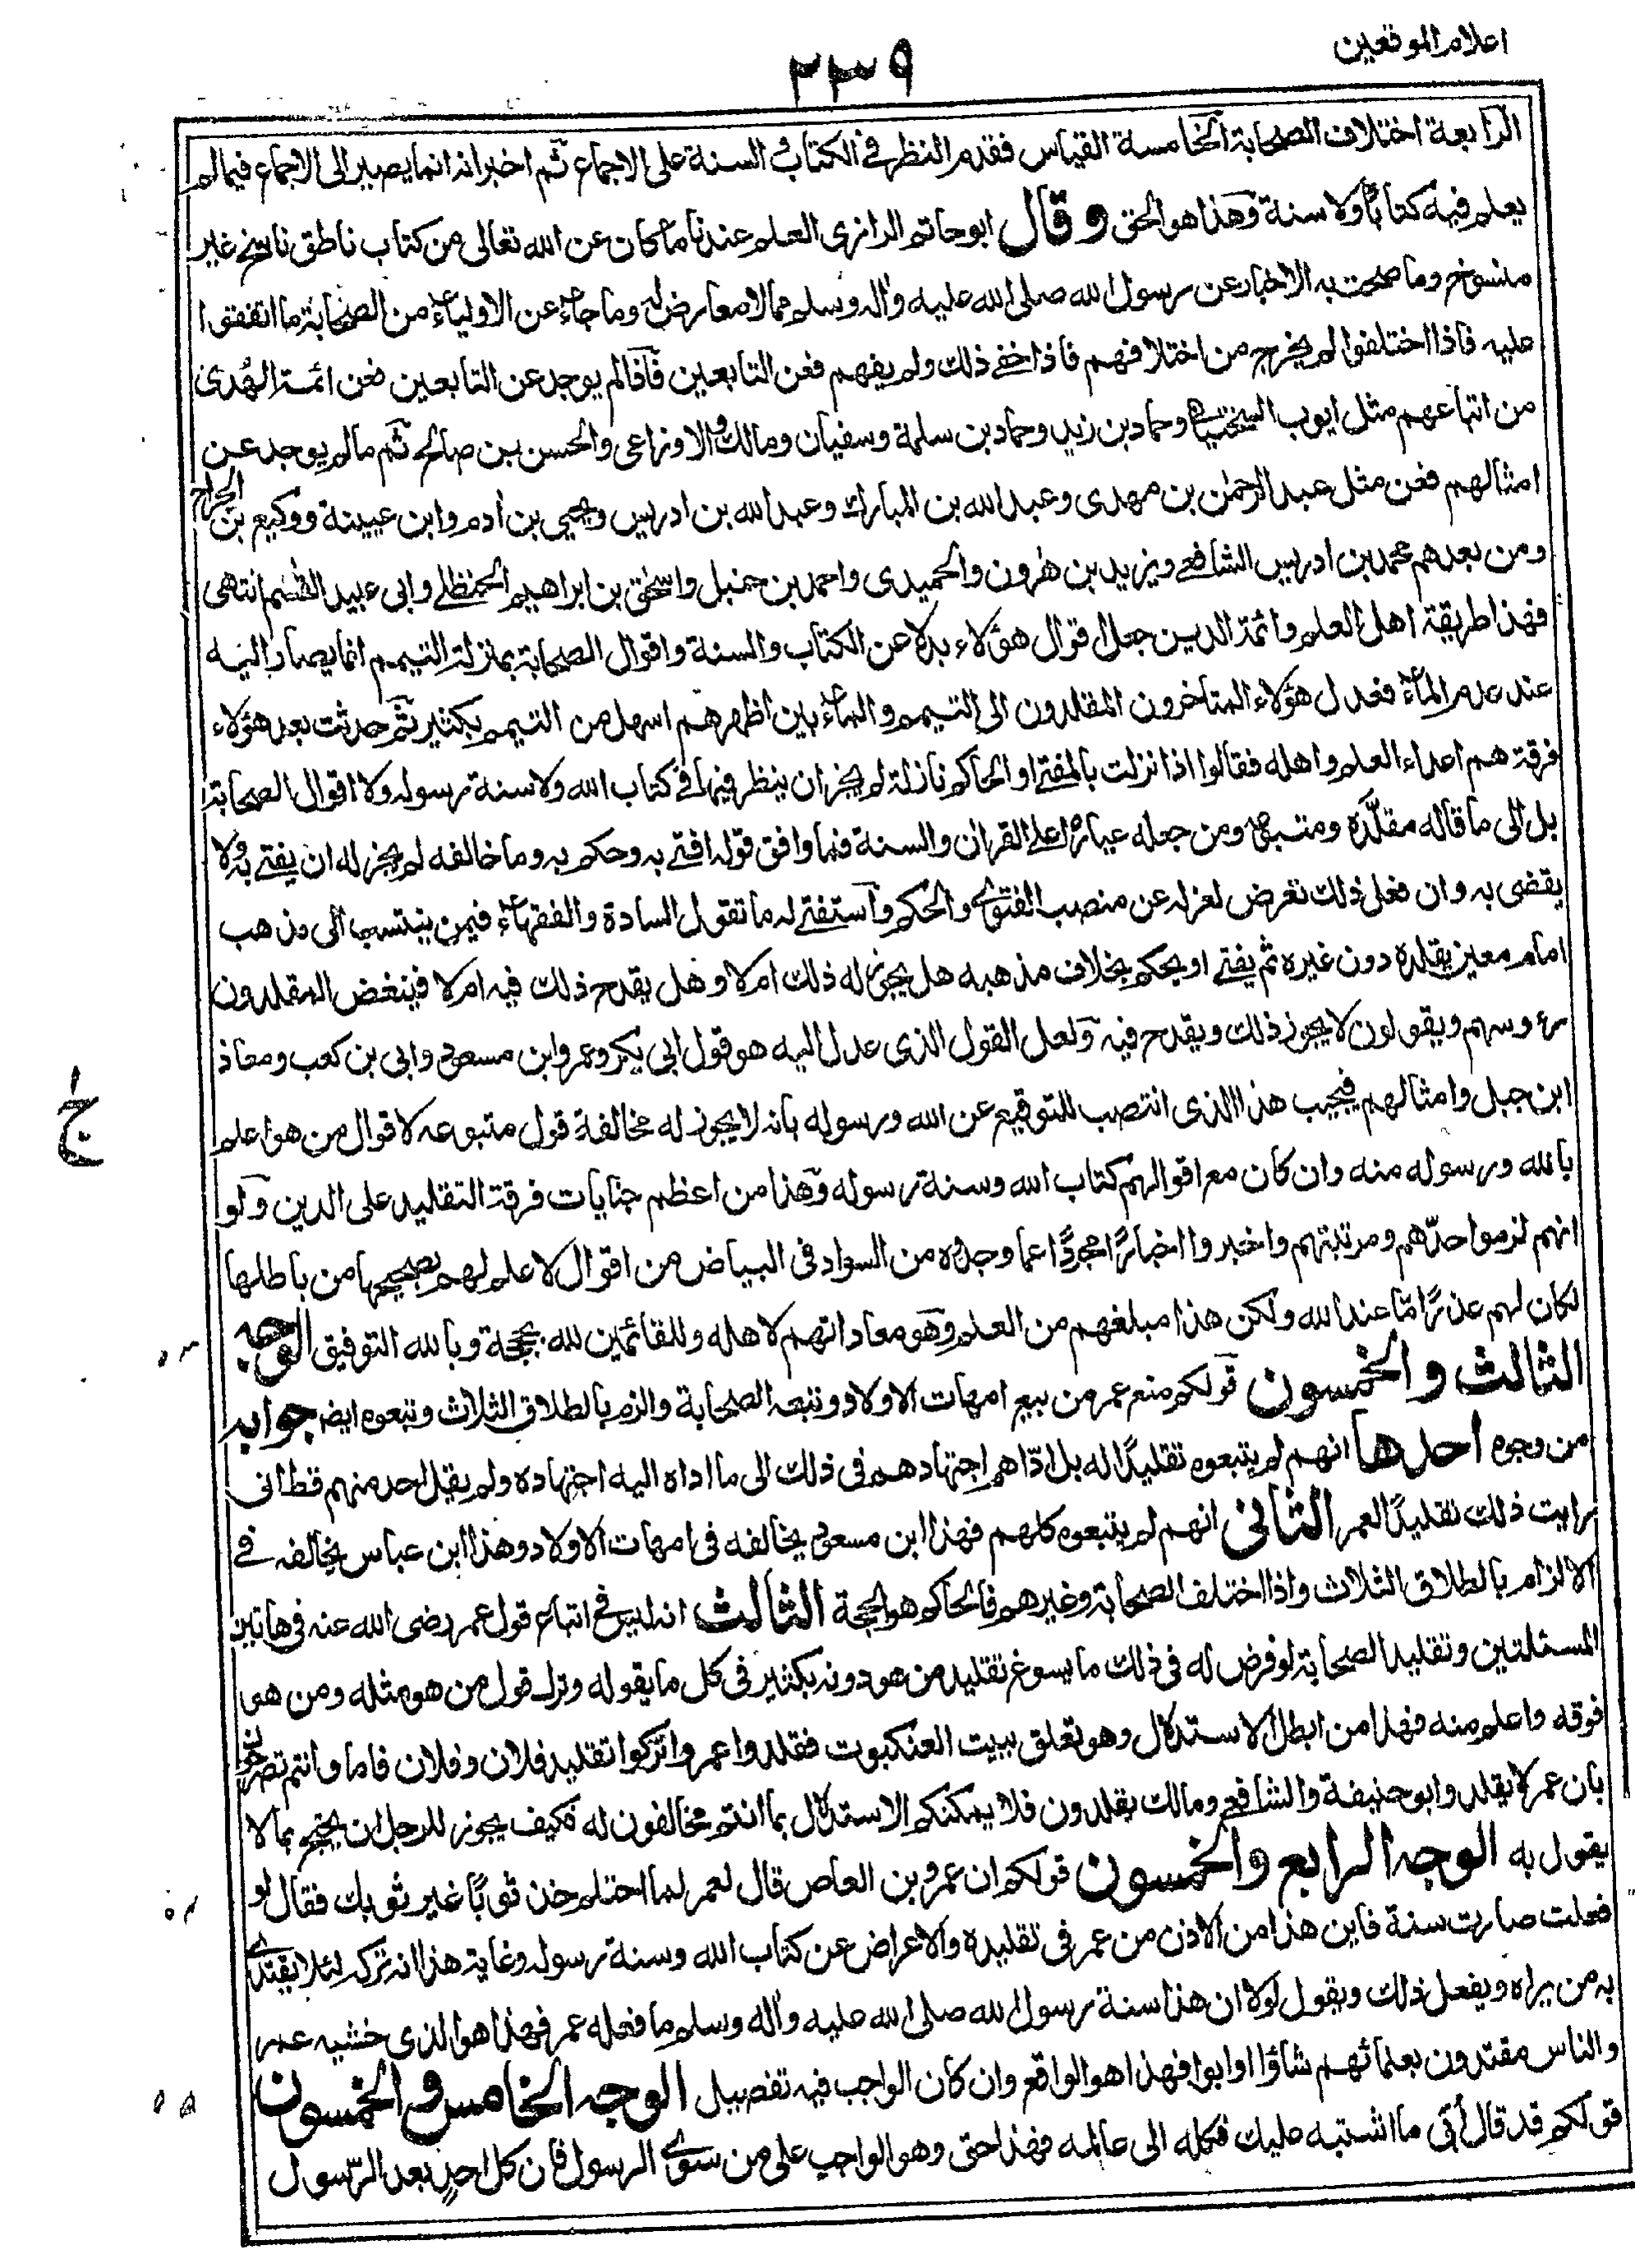 اعلام الموقعین
۲۳۹
الرابعة اختلاف الصحابة الخامسة القیاس فقدم النظر فی الکتاب و السنة علی الاجماع ثم اخبر انه انما یصیر الی الاجماع فیما لم
یعلم فیه کتابًا ولا سنة وهذا هو الحق وقال ابو حاتم الرازی العلم عندنا ما کان عن الله تعالی من کتاب ناطق ناسخ غیر
منسوخ وما صحت به الاخبار عن رسول الله صلی الله علیه واله وسلم مما لا معارض له وما جاء عن الاولیاء من الصحابة ما اتفقوا
علیه فاذا اختلفوا لم یخرج من اختلافهم فاذا خفی ذلك ولم یفهم فعن التابعین فاذا لم یوجد عن التابعین فعن ائمة الهُدی
من اتباعهم مثل ایوب السختیانی وحماد بن زید وحماد بن سلمة وسفیان ومالك والاوزاعی والحسن بن صالح ثم ما لم یوجد عن
امثالهم فعن مثل عبد الرحمٰن بن مهدی وعبد الله بن المبارك وعبد الله بن ادریس ویحیی بن ادم وابن عیینة ووکیع بن الجراح
ومن بعدهم محمد بن ادریس الشافعی ویزید بن هٰرون والحمیدی واحمد بن حنبل واسحٰق بن ابراهیم الحنظلی وابی عبید القٰسم انتهی
فهذا طریقة اهل العلم وائمة الدین جعل اقوال هؤلاء بدلا عن الکتاب والسنة واقوال الصحابة بمنزلة التیمم انما یصار الیه
عند عدم الماء فعدل هؤلاء المتاخرون المقلدون الی التیمم والماء بین اظهرهم اسهل من التیمم بکثیر ثم حدثت بعد هؤلاء
فرقة هم اعداء العلم واهله فقالوا اذا نزلت بالمفتی او الحاکم نازلة لم یجز ان ینظر فیها فی کتاب الله ولا سنة رسوله ولا اقوال الصحابة
بل الی ما قاله مقلَّده ومتبوعه ومن جعله عیارًا علی القران والسنة فما وافق قوله افتی به وحکم به وما خالفه لم یجز له ان یفتی به ولا
یقضی به وان فعل ذلك تعرض لعزله عن منصب الفتوی والحکم واستفتی له ما تقول السادة والفقهاء فیمن ینتسب الی مذهب
امام معین یقلده دون غیره ثم یفتی او یحکم بخلاف مذهبه هل یجوز له ذلك ام لا وهل یقدح ذلك فیه ام لا فینغض المقلدون
رءوسهم ویقولون لا یجوز ذلك ویقدح فیه ولعل القول الذی عدل الیه هو قول ابی بکر وعمر وابن مسعود وابی بن کعب ومعاذ
ابن جبل وامثالهم فیجیب هذا الذی انتصب للتوقیع عن الله ورسوله بانه لا یجوز له مخالفة قول متبوعه لاقوال من هو اعلم
بالله ورسوله منه وان کان مع اقوالهم کتاب الله وسنة رسوله وهذا من اعظم جنایات فرقة التقلید علی الدین ولو
انهم لزموا حدّهم ومرتبتهم واخبروا اخبارًا مجردًا عما وجدوه من السواد فی البیاض من اقوال لا علم لهم بصحیحها من باطلها
لکان لهم عذرًا مّا عند الله ولکن هذا مبلغهم من العلم وهو معاداتهم لاهله وللقائمین لله بحجة وبالله التوفیق الوجه
الثالث والخمسون قولکم منع عمر من بیع امهات الاولاد وتبعه الصحابة والزم بالطلاق الثلاث وتبعوه ایضا جوابه
من وجوه احدها انهم لم یتبعوه تقلیدًا له بل ادّاهم اجتهادهم فی ذلك الی ما اداه الیه اجتهاده ولم یقل احد منهم قط انی
رایت ذلك تقلیدًا لعمر الثانی انهم لم یتبعوه کلهم فهذا ابن مسعود یخالفه فی امهات الاولاد وهذا ابن عباس یخالفه فی
الالزام بالطلاق الثلاث واذا اختلف الصحابة وغیرهم فالحاکم هو الحجة الثالث انه لیس فی اتباع قول عمر رضی الله عنه فی هاتین
المسئلتین وتقلید الصحابة لو فرض له فی ذلك ما یسوغ تقلید من هو دونه بکثیر فی کل ما یقوله وترك قول من هو مثله ومن هو
فوقه واعلم منه فهذا من ابطل الاستدلال وهو تعلق ببیت العنکبوت فقلدوا عمر واترکوا تقلید فلان وفلان فاما وانتم تصرحون
بان عمر لا یقلد وابو حنیفة والشافعی ومالك یقلدون فلا یمکنکم الاستدلال بما انتم مخالفون له فکیف یجوز للرجل ان یحتج بما لا
یقول به الوجه الرابع والخمسون قولکم ان عمرو بن العاص قال لعمر لما احتلم خذ ثوبًا غیر ثوبك فقال لو
فعلت صارت سنة فاین هذا من الاذن من عمر فی تقلیده والاعراض عن کتاب الله وسنة رسوله وغایة هذا انه ترکه لئلا یقتدی
به من یراه ویفعل ذلك ویقول لولا ان هذا سنة رسول الله صلی الله علیه واٰله وسلم ما فعله عمر فهذا هو الذی خشیه عمر
والناس مقتدون بعلمائهم شاؤا او ابوا فهذا هو الواقع وان کان الواجب فیه تفصیل الوجه الخامس والخمسون
قولکم قد قال اُبی ما اشتبه علیك فکله الی عالمه فهذا حق وهو الواجب علی من سوی الرسول فان کل احدٍ بعد الرّسول
ج
۵۳
۵۴
۵۵